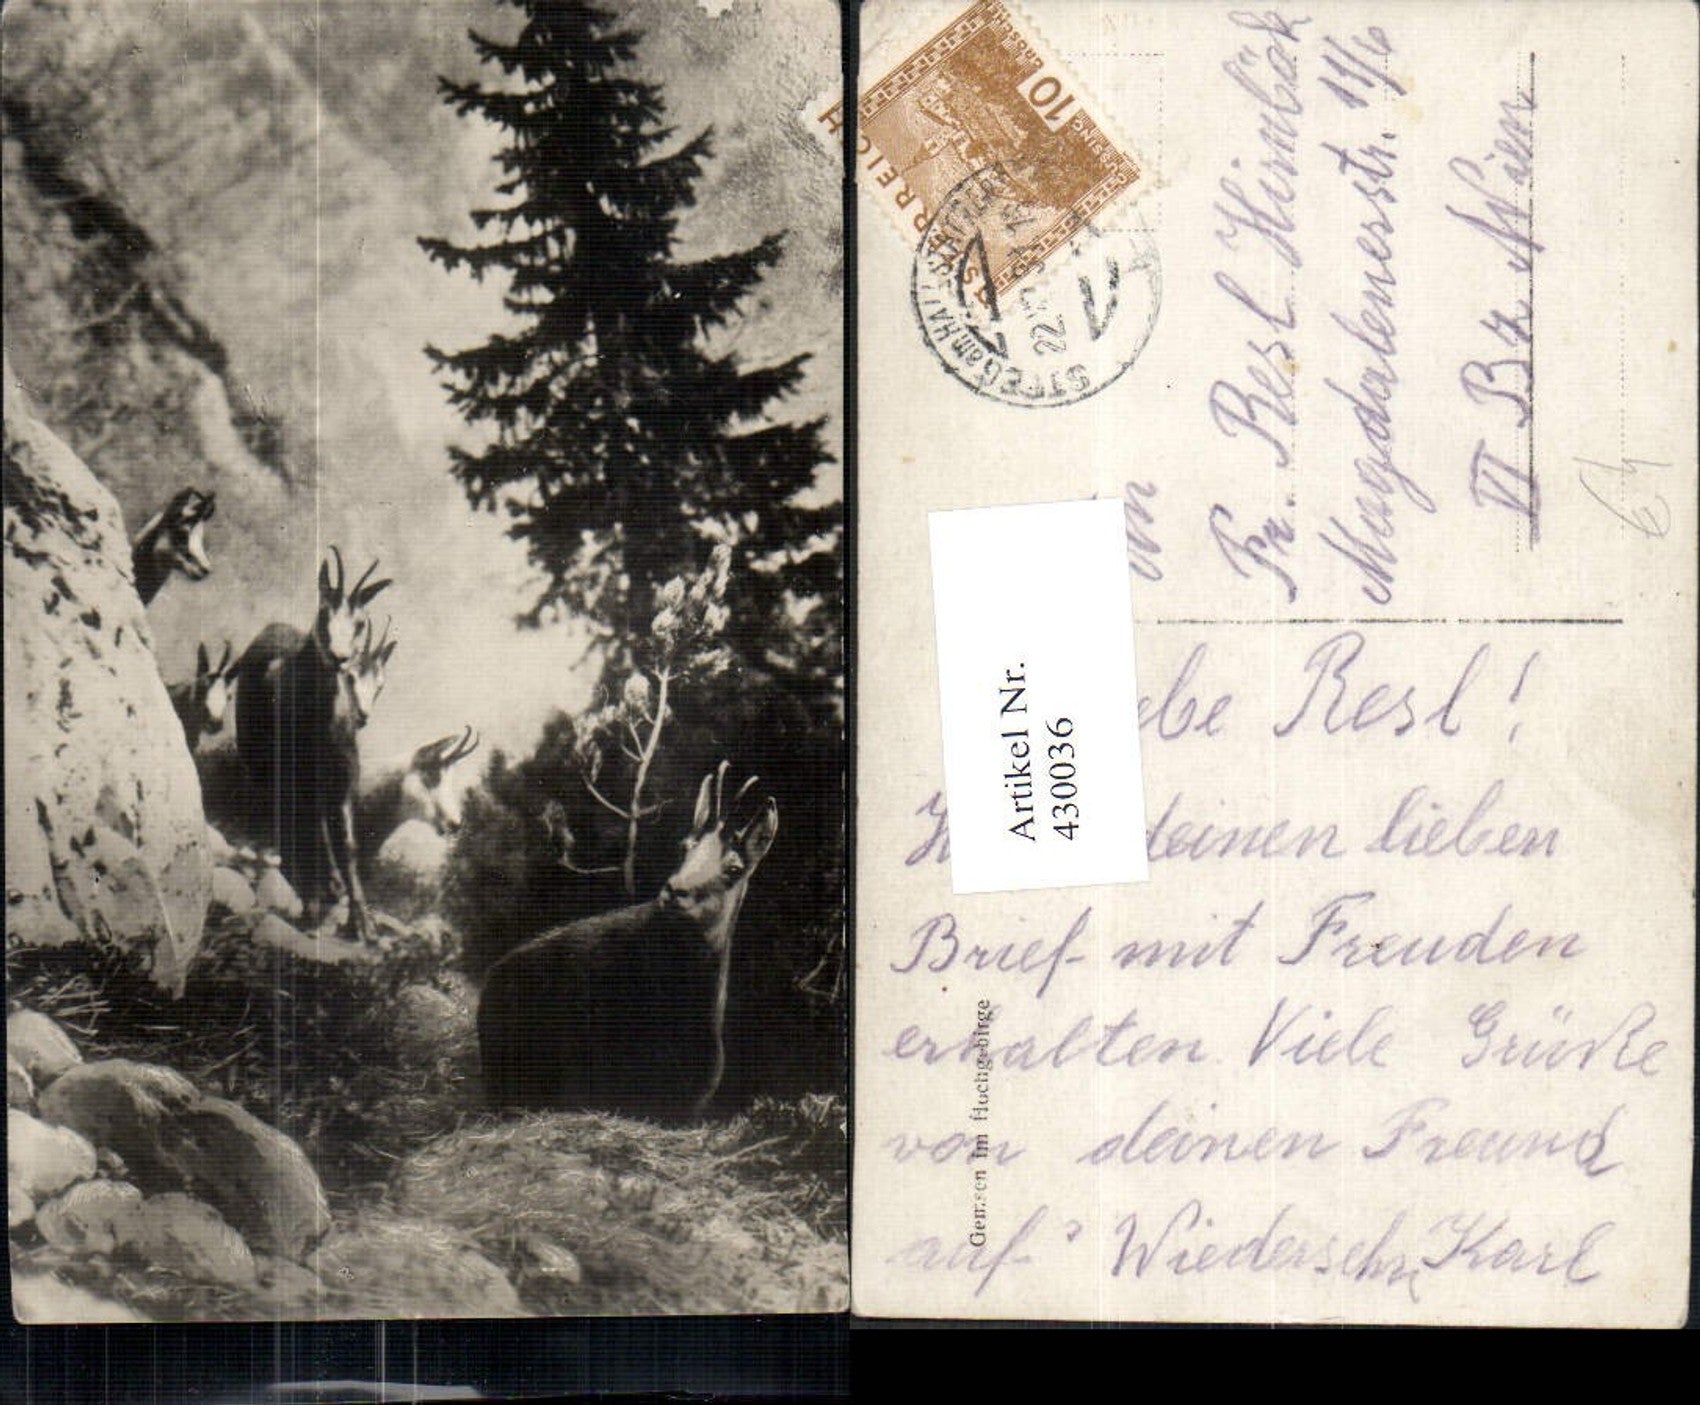 ÖSTERREICH
10
GROSCHEN
GÜSSING
STEG am HALLSTÄTTERSEE
An
Fr. Resl Himlböck
Magdalenenstr. 14/6
VI Bz Wien
Artikel Nr.
430036
Liebe Resl!
deinen lieben
Brief mit Freuden
erhalten. Viele Grüße
von deinen Freund
auf Wiedersehn Karl
Gemsen im Hochgebirge